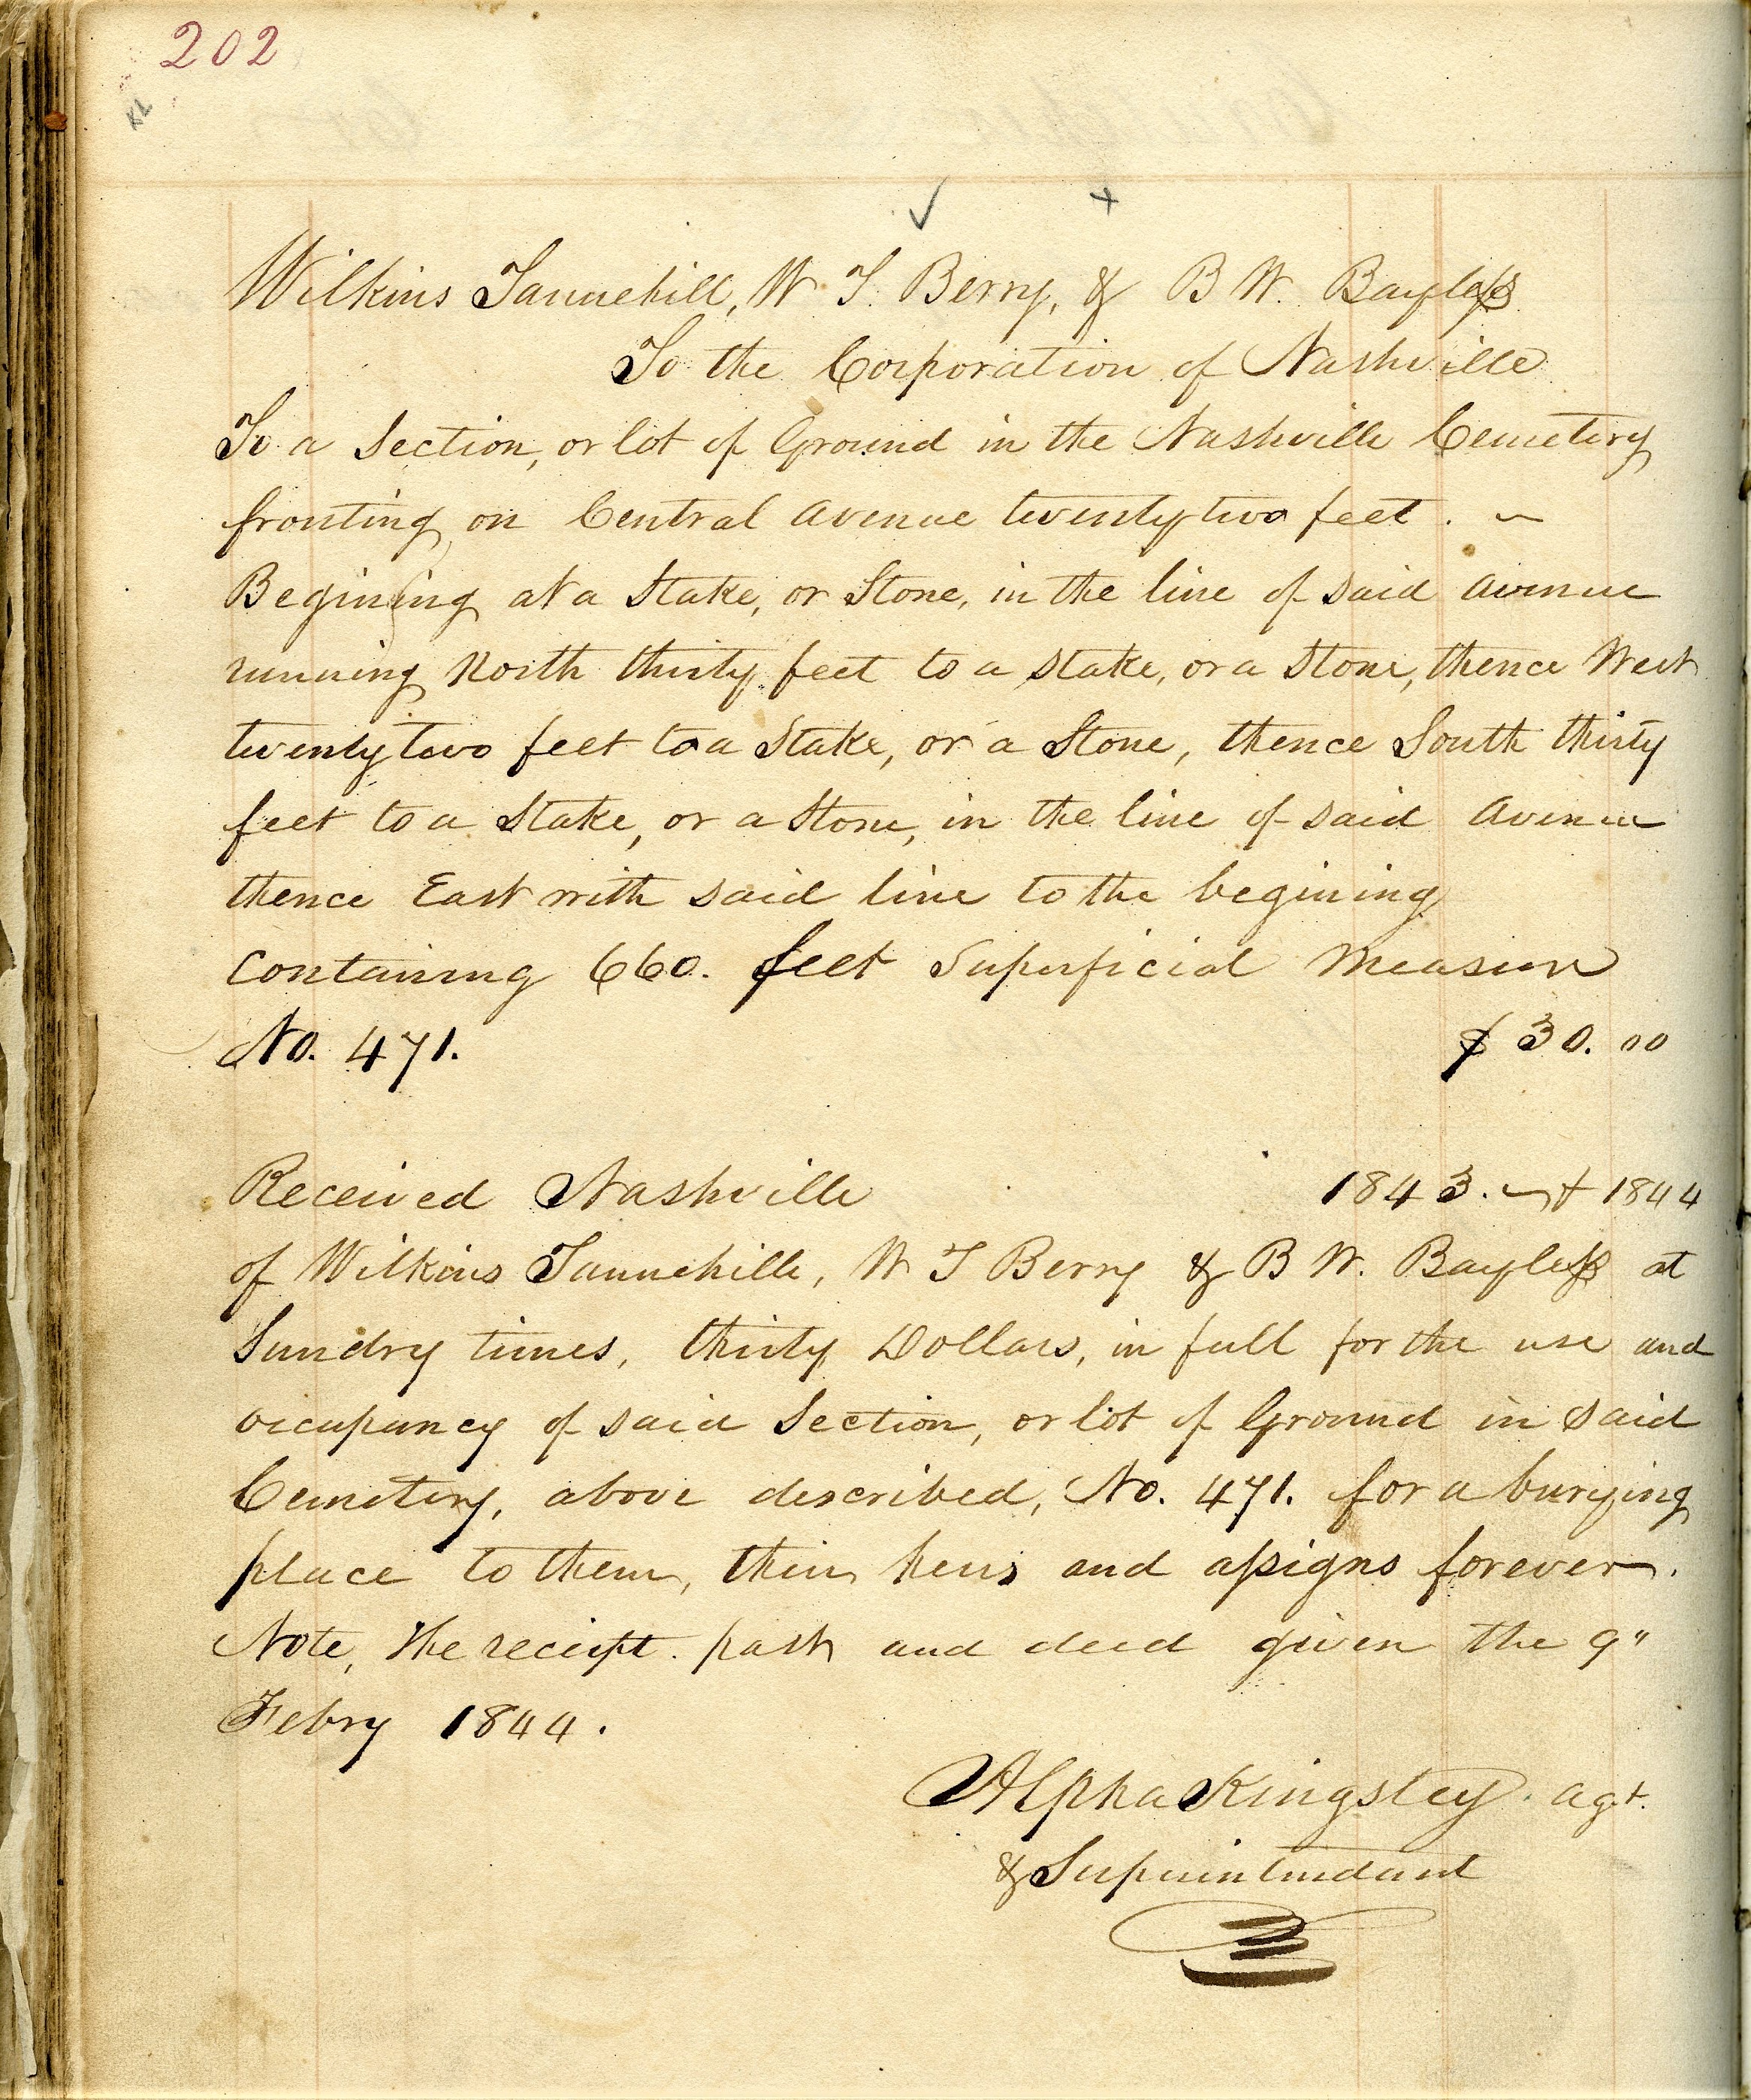 202
Wilkins Tannehill, W. T. Berry, & B W. Bayless
To the Corporation of Nashville
To a Section, or lot of Ground in the Nashville Cemetery
fronting on Central Avenue twenty two feet.
Begining at a Stake, or Stone, in the line of said Avenue
running North thirty feet to a Stake, or a Stone, thence West
twenty two feet to a Stake, or a Stone, thence South thirty
feet to a Stake, or a Stone, in the line of said Avenue
thence East with said line to the begining
Containing 660. feet Superficial Measure
No. 471. $ 30.00
Received Nashville 1843. & 1844
of Wilkins Tannehill, W T Berry & B W. Bayless at
Sundry times, thirty Dollars, in full for the use and
occupancy of said Section, or lot of Ground in said
Cemetery, above described, No. 471. for a burying
place to them, their heirs and assigns forever.
Note, The receipt past and deed given the 9"
Febry 1844.
Alpha Kingsley Agt.
& Superintendant